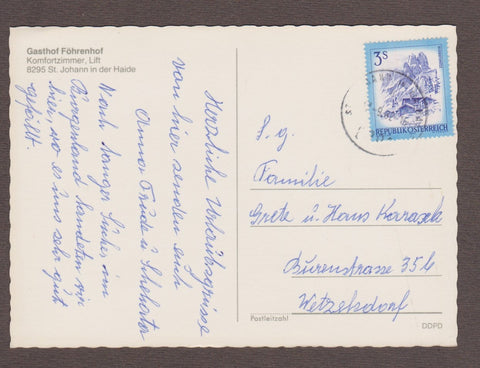 Gasthof Föhrenhof
Komfortzimmer, Lift
8295 St. Johann in der Haide
Herzliche Urlaubsgrüsse
von hier senden euch
Anna Friedl u.
Nach langer Suche im
Burgenland landeten wir
hier, wo es uns sehr gut
gefällt.
3S
REPUBLIK ÖSTERREICH
S. g.
Familie
Grete u. Hans Karasek
Burenstrasse 35b
Wetzelsdorf
Postleitzahl
DDPD